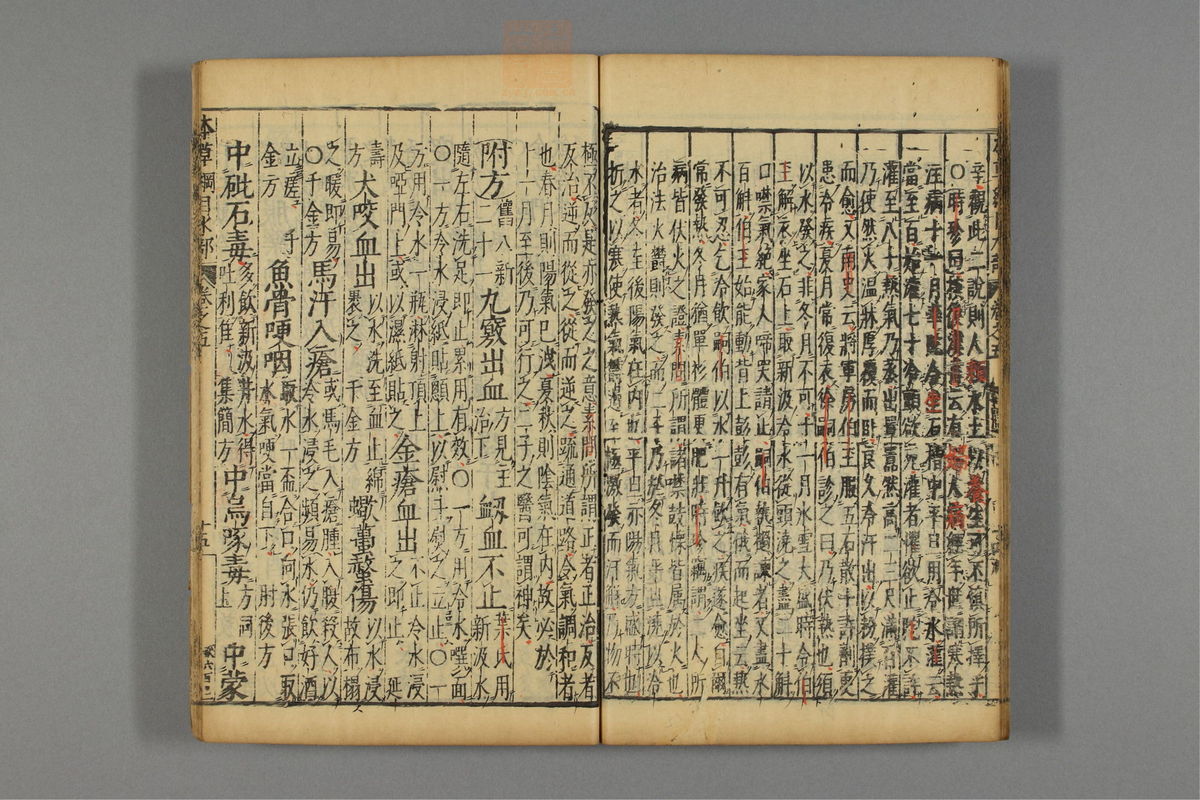 辛觀此二說則人賴水土以養生可不愼所擇乎
○時珍曰按後漢書云有婦人病經年世謂寒熱
注病十一月華陀令坐石槽中平旦用冷水灌云
當至百始灌七十冷顫欲死灌者懼欲止陀不許
灌至八十熱氣乃蒸出囂囂然高二三尺滿百灌
乃使然火温牀厚覆而卧良久冷汗出以粉撲之
而愈又南史云將軍房伯玉服五石散十許劑更
患冷疾夏月常復衣徐嗣伯診之曰乃伏熱也須
以水發之非冬月不可十一月氷雪大盛時令伯
玉解衣坐石上取新汲冷水從頭澆之盡二十斛
口噤氣絶家人啼哭請止嗣伯執撾諫者又盡水
百斛伯玉始能動背上彭彭有氣俄而起坐云熱
不可忍乞冷飲嗣伯以水一升飲之疾遂愈自爾
常發熱冬月猶單衫體更肥壯時珍竊謂二人所
病皆伏火之證素問所謂諸噤鼓慄皆屬於火也
治法火鬱則發之而二子乃於冬月平旦澆以冷
水者冬至後陽氣在内也平旦亦陽氣方盛時也
折之以寒使熱氣鬱遏至極激發而汗解乃物不
極不反是亦發之之意素問所謂正者正治反者
反治逆而從之從而逆之疏通道路令氣調和者
也春月則陽氣已泄夏秋則陰氣在内故必於
十一月至後乃可行之二子之醫可謂神矣
附方舊八新二十一九竅出血方見主治下衂血不止葉氏用新汲水
隨左右洗足即止累用有效○一方用冷水噀面
○一方冷水浸紙貼顖上以熨斗熨之立止○一
方用冷水一瓶淋射頂上及啞門上或以濕紙貼之金瘡血出不止冷水浸之即止延
壽方犬咬血出以水洗至血止綿裹之千金方蠍蠆螫傷以水浸故布搨
之暖即易○千金方馬汗入瘡或馬毛入瘡腫入腹殺人以冷水浸之頻易水仍飲好酒
立瘥千金方魚骨哽咽取水一盃合口向水張口取水氣哽當自下肘後方
中砒石毒多飲新汲井水得吐利佳集簡方中烏喙毒方同上中蒙
本草綱目水部 卷之五 十五